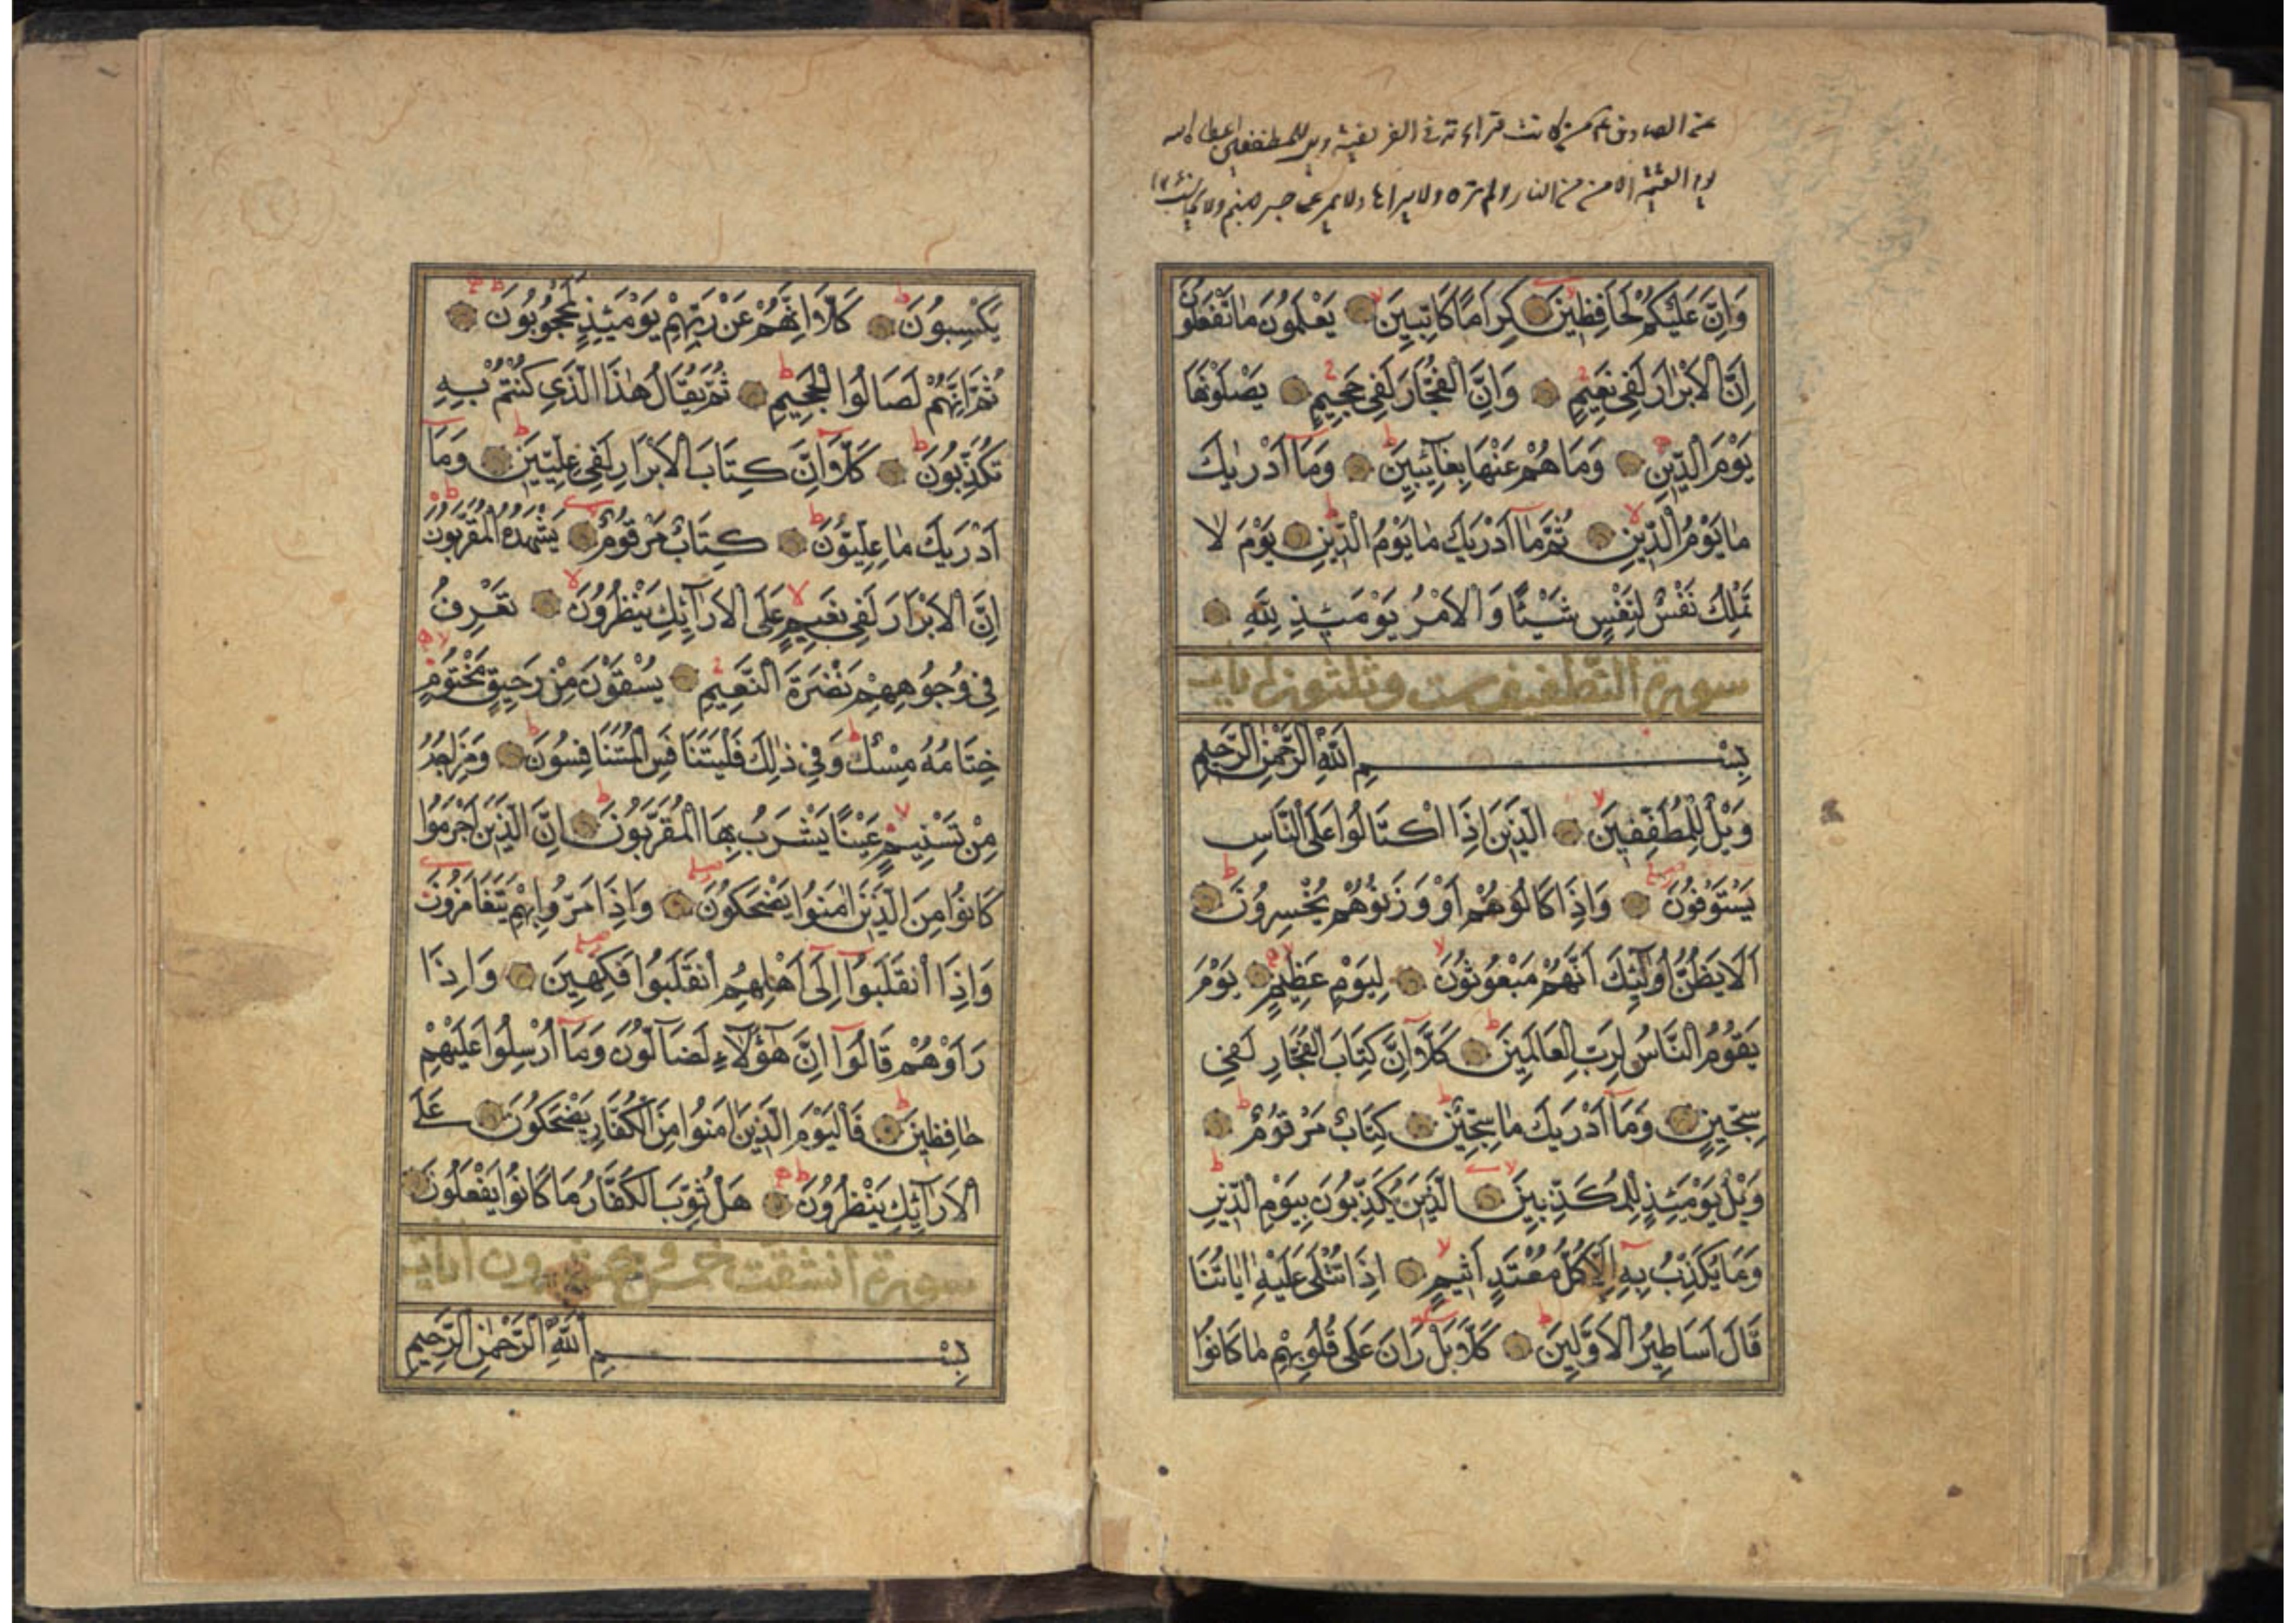 عن الصادق ع من كانت قراءته في الفريضة ويل للمطففين اعطاه الله
يوم القيمة الامن من النار ولم تره ولا يراها ولا يمر على جسر جهنم ولا
وَاِنَّ عَلَيْكُمْ لَحَافِظِينَ كِرَامًا كَاتِبِينَ يَعْلَمُونَ مَا تَفْعَلُونَ
اِنَّ الْاَبْرَارَ لَفِي نَعِيمٍ وَاِنَّ الْفُجَّارَ لَفِي جَحِيمٍ يَصْلَوْنَهَا
يَوْمَ الدِّينِ وَمَا هُمْ عَنْهَا بِغَآئِبِينَ وَمَآ اَدْرٰيكَ
مَا يَوْمُ الدِّينِ ثُمَّ مَآ اَدْرَيكَ مَا يَوْمُ الدِّينِ يَوْمَ لَا
تَمْلِكُ نَفْسٌ لِنَفْسٍ شَيْئًا وَالْاَمْرُ يَوْمَئِذٍ لِلّٰهِ
سورة التطفيف ست وثلثون اية
بِسْمِ اللّٰهِ الرَّحْمٰنِ الرَّحِيمِ
وَيْلٌ لِلْمُطَفِّفِينَ الَّذِينَ اِذَا اكْتَالُوا عَلَى النَّاسِ
يَسْتَوْفُونَ وَاِذَا كَالُوهُمْ اَوْ وَزَنُوهُمْ يُخْسِرُونَ
اَلَا يَظُنُّ اُولٰٓئِكَ اَنَّهُمْ مَبْعُوثُونَ لِيَوْمٍ عَظِيمٍ يَوْمَ
يَقُومُ النَّاسُ لِرَبِّ الْعَالَمِينَ كَلَّآ اِنَّ كِتَابَ الْفُجَّارِ لَفِي
سِجِّينٍ وَمَآ اَدْرَيكَ مَا سِجِّينٌ كِتَابٌ مَرْقُومٌ
وَيْلٌ يَوْمَئِذٍ لِلْمُكَذِّبِينَ الَّذِينَ يُكَذِّبُونَ بِيَوْمِ الدِّينِ
وَمَا يُكَذِّبُ بِهِ اِلَّا كُلُّ مُعْتَدٍ اَثِيمٍ اِذَا تُتْلَى عَلَيْهِ اٰيَاتُنَا
قَالَ اَسَاطِيرُ الْاَوَّلِينَ كَلَّا بَلْ رَانَ عَلَى قُلُوبِهِمْ مَا كَانُوا
يَكْسِبُونَ كَلَّآ اِنَّهُمْ عَنْ رَبِّهِمْ يَوْمَئِذٍ لَمَحْجُوبُونَ
ثُمَّ اِنَّهُمْ لَصَالُوا الْجَحِيمِ ثُمَّ يُقَالُ هٰذَا الَّذِي كُنْتُمْ بِهِ
تُكَذِّبُونَ كَلَّآ اِنَّ كِتَابَ الْاَبْرَارِ لَفِي عِلِّيِّينَ وَمَآ
اَدْرَيكَ مَا عِلِّيُّونَ كِتَابٌ مَرْقُومٌ يَشْهَدُهُ الْمُقَرَّبُونَ
اِنَّ الْاَبْرَارَ لَفِي نَعِيمٍ عَلَى الْاَرَآئِكِ يَنْظُرُونَ تَعْرِفُ
فِي وُجُوهِهِمْ نَضْرَةَ النَّعِيمِ يُسْقَوْنَ مِنْ رَحِيقٍ مَخْتُومٍ
خِتَامُهُ مِسْكٌ وَفِي ذٰلِكَ فَلْيَتَنَافَسِ الْمُتَنَافِسُونَ وَمِزَاجُهُ
مِنْ تَسْنِيمٍ عَيْنًا يَشْرَبُ بِهَا الْمُقَرَّبُونَ اِنَّ الَّذِينَ اَجْرَمُوا
كَانُوا مِنَ الَّذِينَ اٰمَنُوا يَضْحَكُونَ وَاِذَا مَرُّوا بِهِمْ يَتَغَامَزُونَ
وَاِذَا انْقَلَبُوٓا اِلَىٓ اَهْلِهِمُ انْقَلَبُوا فَكِهِينَ وَاِذَا
رَاَوْهُمْ قَالُوٓا اِنَّ هٰٓؤُلَآءِ لَضَآلُّونَ وَمَآ اُرْسِلُوا عَلَيْهِمْ
حَافِظِينَ فَالْيَوْمَ الَّذِينَ اٰمَنُوا مِنَ الْكُفَّارِ يَضْحَكُونَ عَلَى
الْاَرَآئِكِ يَنْظُرُونَ هَلْ ثُوِّبَ الْكُفَّارُ مَا كَانُوا يَفْعَلُونَ
سورة انشقت خمس وعشرون اية
بِسْمِ اللّٰهِ الرَّحْمٰنِ الرَّحِيمِ